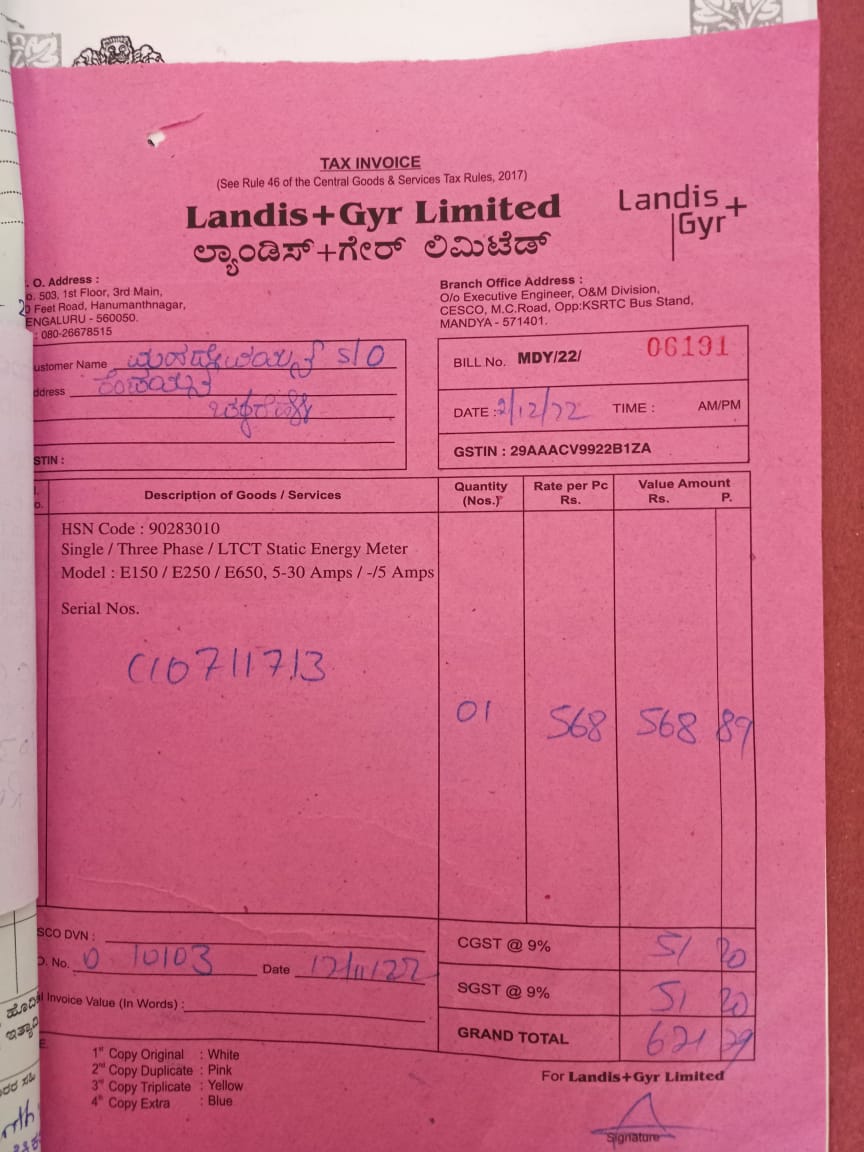 TAX INVOICE
(See Rule 46 of the Central Goods & Services Tax Rules, 2017)
Landis+Gyr Limited
ಲ್ಯಾಂಡಿಸ್+ಗೇರ್ ಲಿಮಿಟೆಡ್
Landis
Gyr+
. O. Address :
o. 503, 1st Floor, 3rd Main,
Feet Road, Hanumanthnagar,
ENGALURU - 560050.
: 080-26678515
Branch Office Address :
O/o Executive Engineer, O&M Division,
CESCO, M.C.Road, Opp:KSRTC Bus Stand,
MANDYA - 571401.
ustomer Name S/O
ddress
STIN :
BILL No. MDY/22/ 06191
DATE : 2/12/22 TIME : AM/PM
GSTIN : 29AAACV9922B1ZA
Description of Goods / Services
Quantity (Nos.)
Rate per Pc Rs.
Value Amount Rs. P.
HSN Code : 90283010
Single / Three Phase / LTCT Static Energy Meter
Model : E150 / E250 / E650, 5-30 Amps / -/5 Amps
Serial Nos.
C10711713
01 568 568 89
SCO DVN :
O. No. 0 10103 Date 17/11/22
al Invoice Value (In Words) :
CGST @ 9% 51 20
SGST @ 9% 51 20
GRAND TOTAL 671 29
1st Copy Original : White
2nd Copy Duplicate : Pink
3rd Copy Triplicate : Yellow
4th Copy Extra : Blue
For Landis+Gyr Limited
Signature